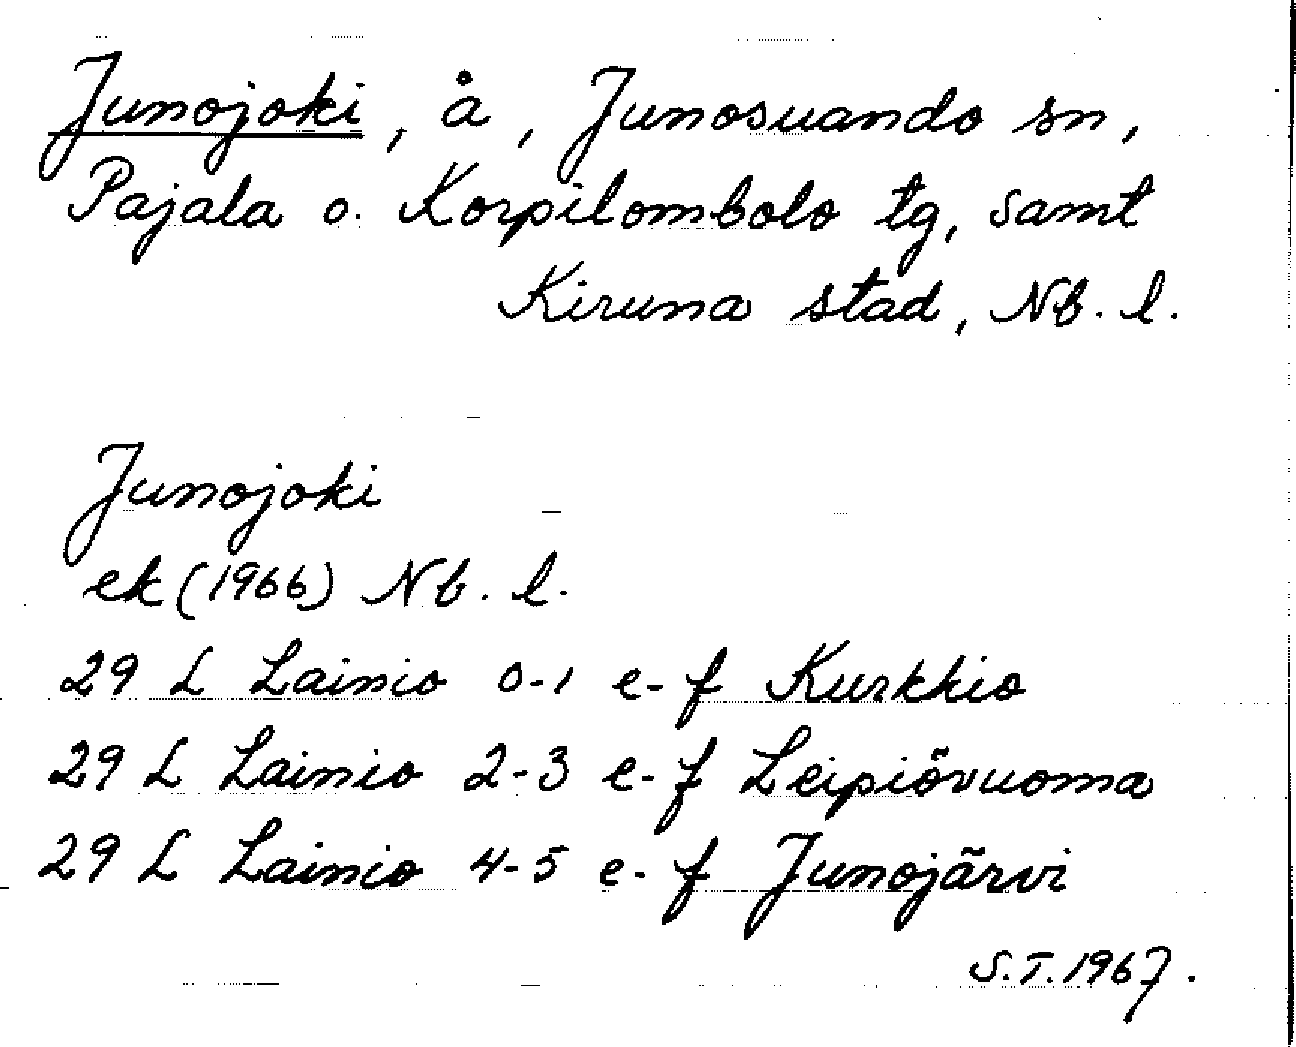 Junojoki, å, Junosuando sn,
Pajala o. Korpilombolo tg, samt
Kiruna stad, Nb. l.
Junojoki
ek (1966) Nb. l.
29 L Lainio 0-1 e-f Kurkkio
29 L Lainio 2-3 e-f Leipiövuoma
29 L Lainio 4-5 e-f Junojärvi
S.T. 1967.